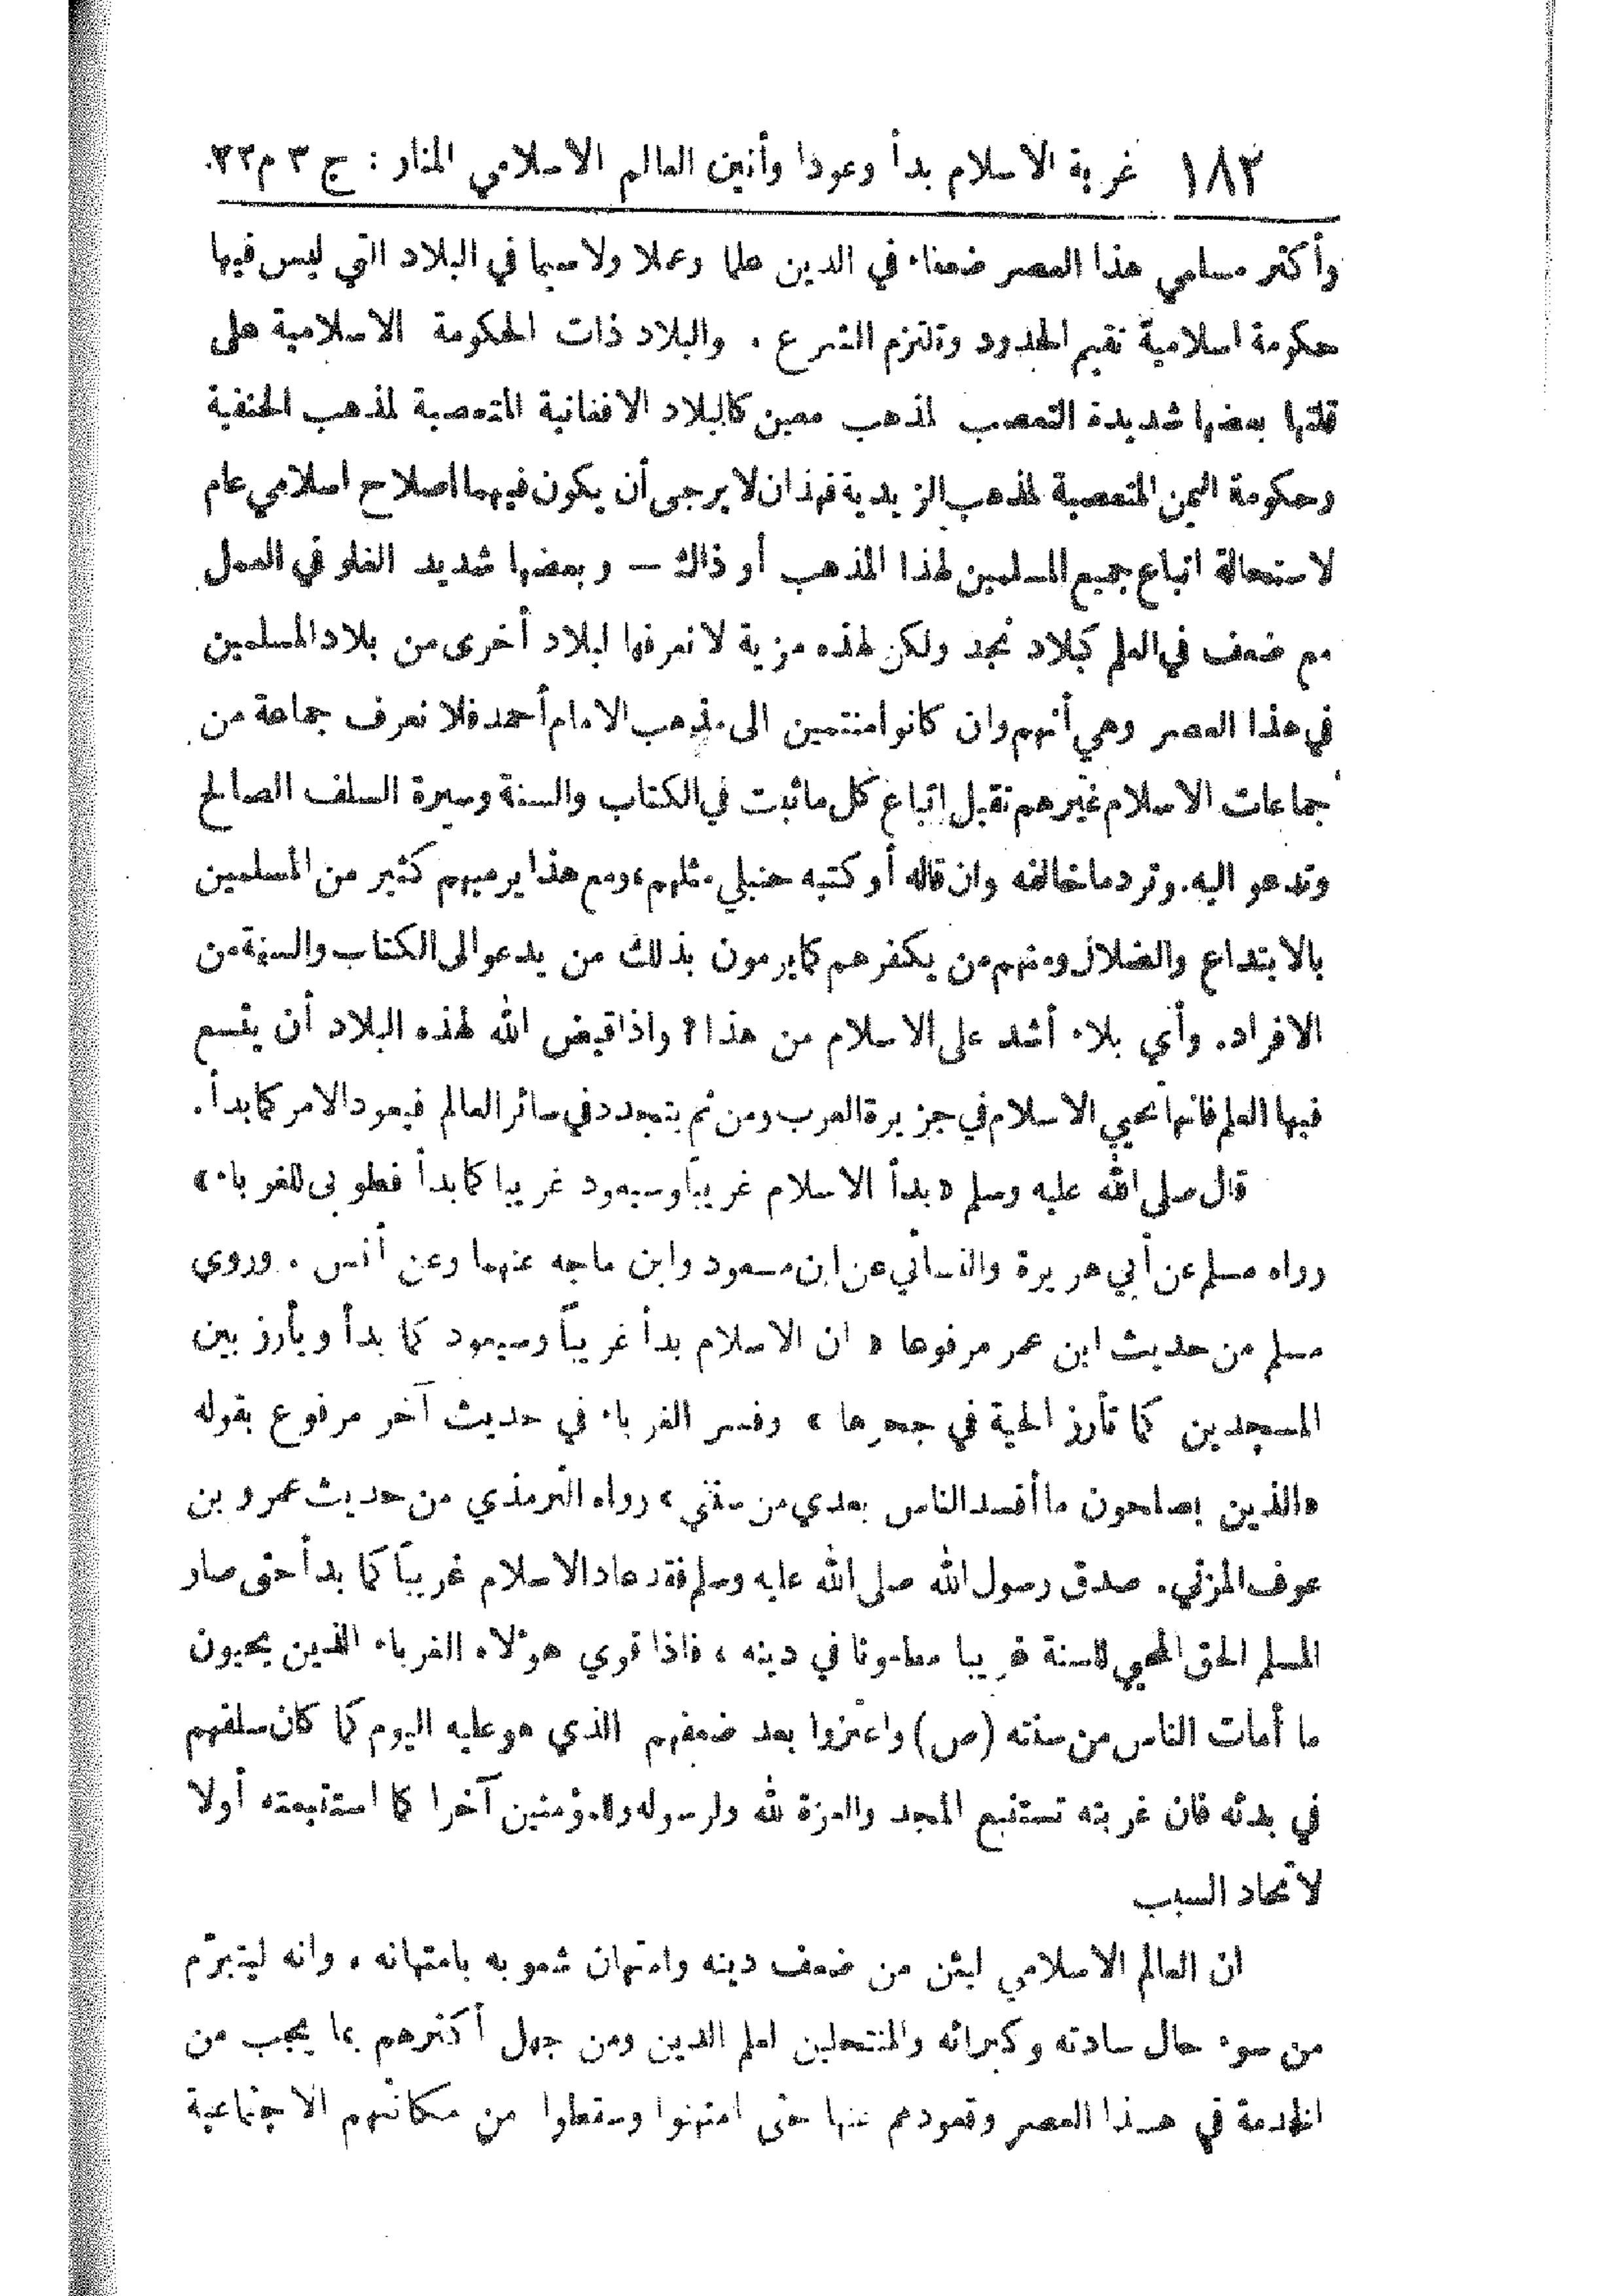 ١٨٢ غربة الاسلام بدأ وعودا وأنين العالم الاسلامي المنار : ج ٣ م ٢٣
وأكثر مسلمي هذا العصر ضعفاء في الدين علما وعملا ولا سيما في البلاد التي ليس فيها
حكومة اسلامية تقيم الحدود وتلتزم الشرع . والبلاد ذات الحكومة الاسلامية على
قلتها بعضها شديدة التعصب لمذهب معين كالبلاد الافغانية المتعصبة لمذهب الحنفية
وحكومة اليمن المتعصبة لمذهب الزيدية فهذان لا يرجى أن يكون فيهما اصلاح اسلامي عام
لاستحالة اتباع جميع المسلمين لهذا المذهب أو ذاك – وبعضها شديد الغلو في العمل
مع ضعف في العلم كبلاد نجد ولكن لهذه مزية لا نعرفها لبلاد أخرى من بلاد المسلمين
في هذا العصر وهي أنهم وان كانوا منتمين الى مذهب الامام أحمد فلا نعرف جماعة من
جماعات الاسلام غيرهم تقبل اتباع كل ما ثبت في الكتاب والسنة وسيرة السلف الصالح
وتدعو اليه . وترد ما خالفه وان قاله أو كتبه حنبلي مثلهم ، ومع هذا يرميهم كثير من المسلمين
بالابتداع والضلال ومنهم من يكفرهم كما يرمون بذلك من يدعو الى الكتاب والسنة من
الافراد . وأي بلاء أشد على الاسلام من هذا ؟ واذا قيض الله لهذه البلاد أن يتسع
فيها العلم فانها تحيي الاسلام في جزيرة العرب ومن ثم يتجدد في سائر العالم فيعود الامر كما بدأ .
قال صلى الله عليه وسلم « بدأ الاسلام غريباً وسيعود غريبا كما بدأ فطوبى للغرباء »
رواه مسلم عن أبي هريرة والنسائي عن ابن مسعود وابن ماجه عنهما وعن أنس . وروي
مسلم من حديث ابن عمر مرفوعا « ان الاسلام بدأ غريباً وسيعود كما بدأ ويأرز بين
المسجدين كما تأرز الحية في جحرها » وفسر الغرباء في حديث آخر مرفوع بقوله
« الذين يصلحون ما أفسد الناس بعدي من سنتي » رواه الترمذي من حديث عمرو بن
عوف المزني . صدق رسول الله صلى الله عليه وسلم فقد عاد الاسلام غريباً كما بدأ حتى صار
المسلم الحق المحيي للسنة غريبا مطعونا في دينه ، فاذا قوي هؤلاء الغرباء الذين يحيون
ما أمات الناس من سنته (ص) واعتزوا بعد ضعفهم الذي هو عليه اليوم كما كان سلفهم
في بدئه فان غربته تستتبع المجد والعزة لله ولرسوله وللمؤمنين آخرا كما استتبعته أولا
لاتحاد السبب
ان العالم الاسلامي ليئن من ضعف دينه وامتهان شعوبه بامتهانه ، وانه ليتبرّم
من سوء حال سادته وكبرائه والمنتحلين لعلم الدين ومن جهل أكثرهم بما يجب من
الخدمة في هذا العصر وقعودهم عنها حتى امتهنوا وسقطوا من مكانتهم الاجتماعية